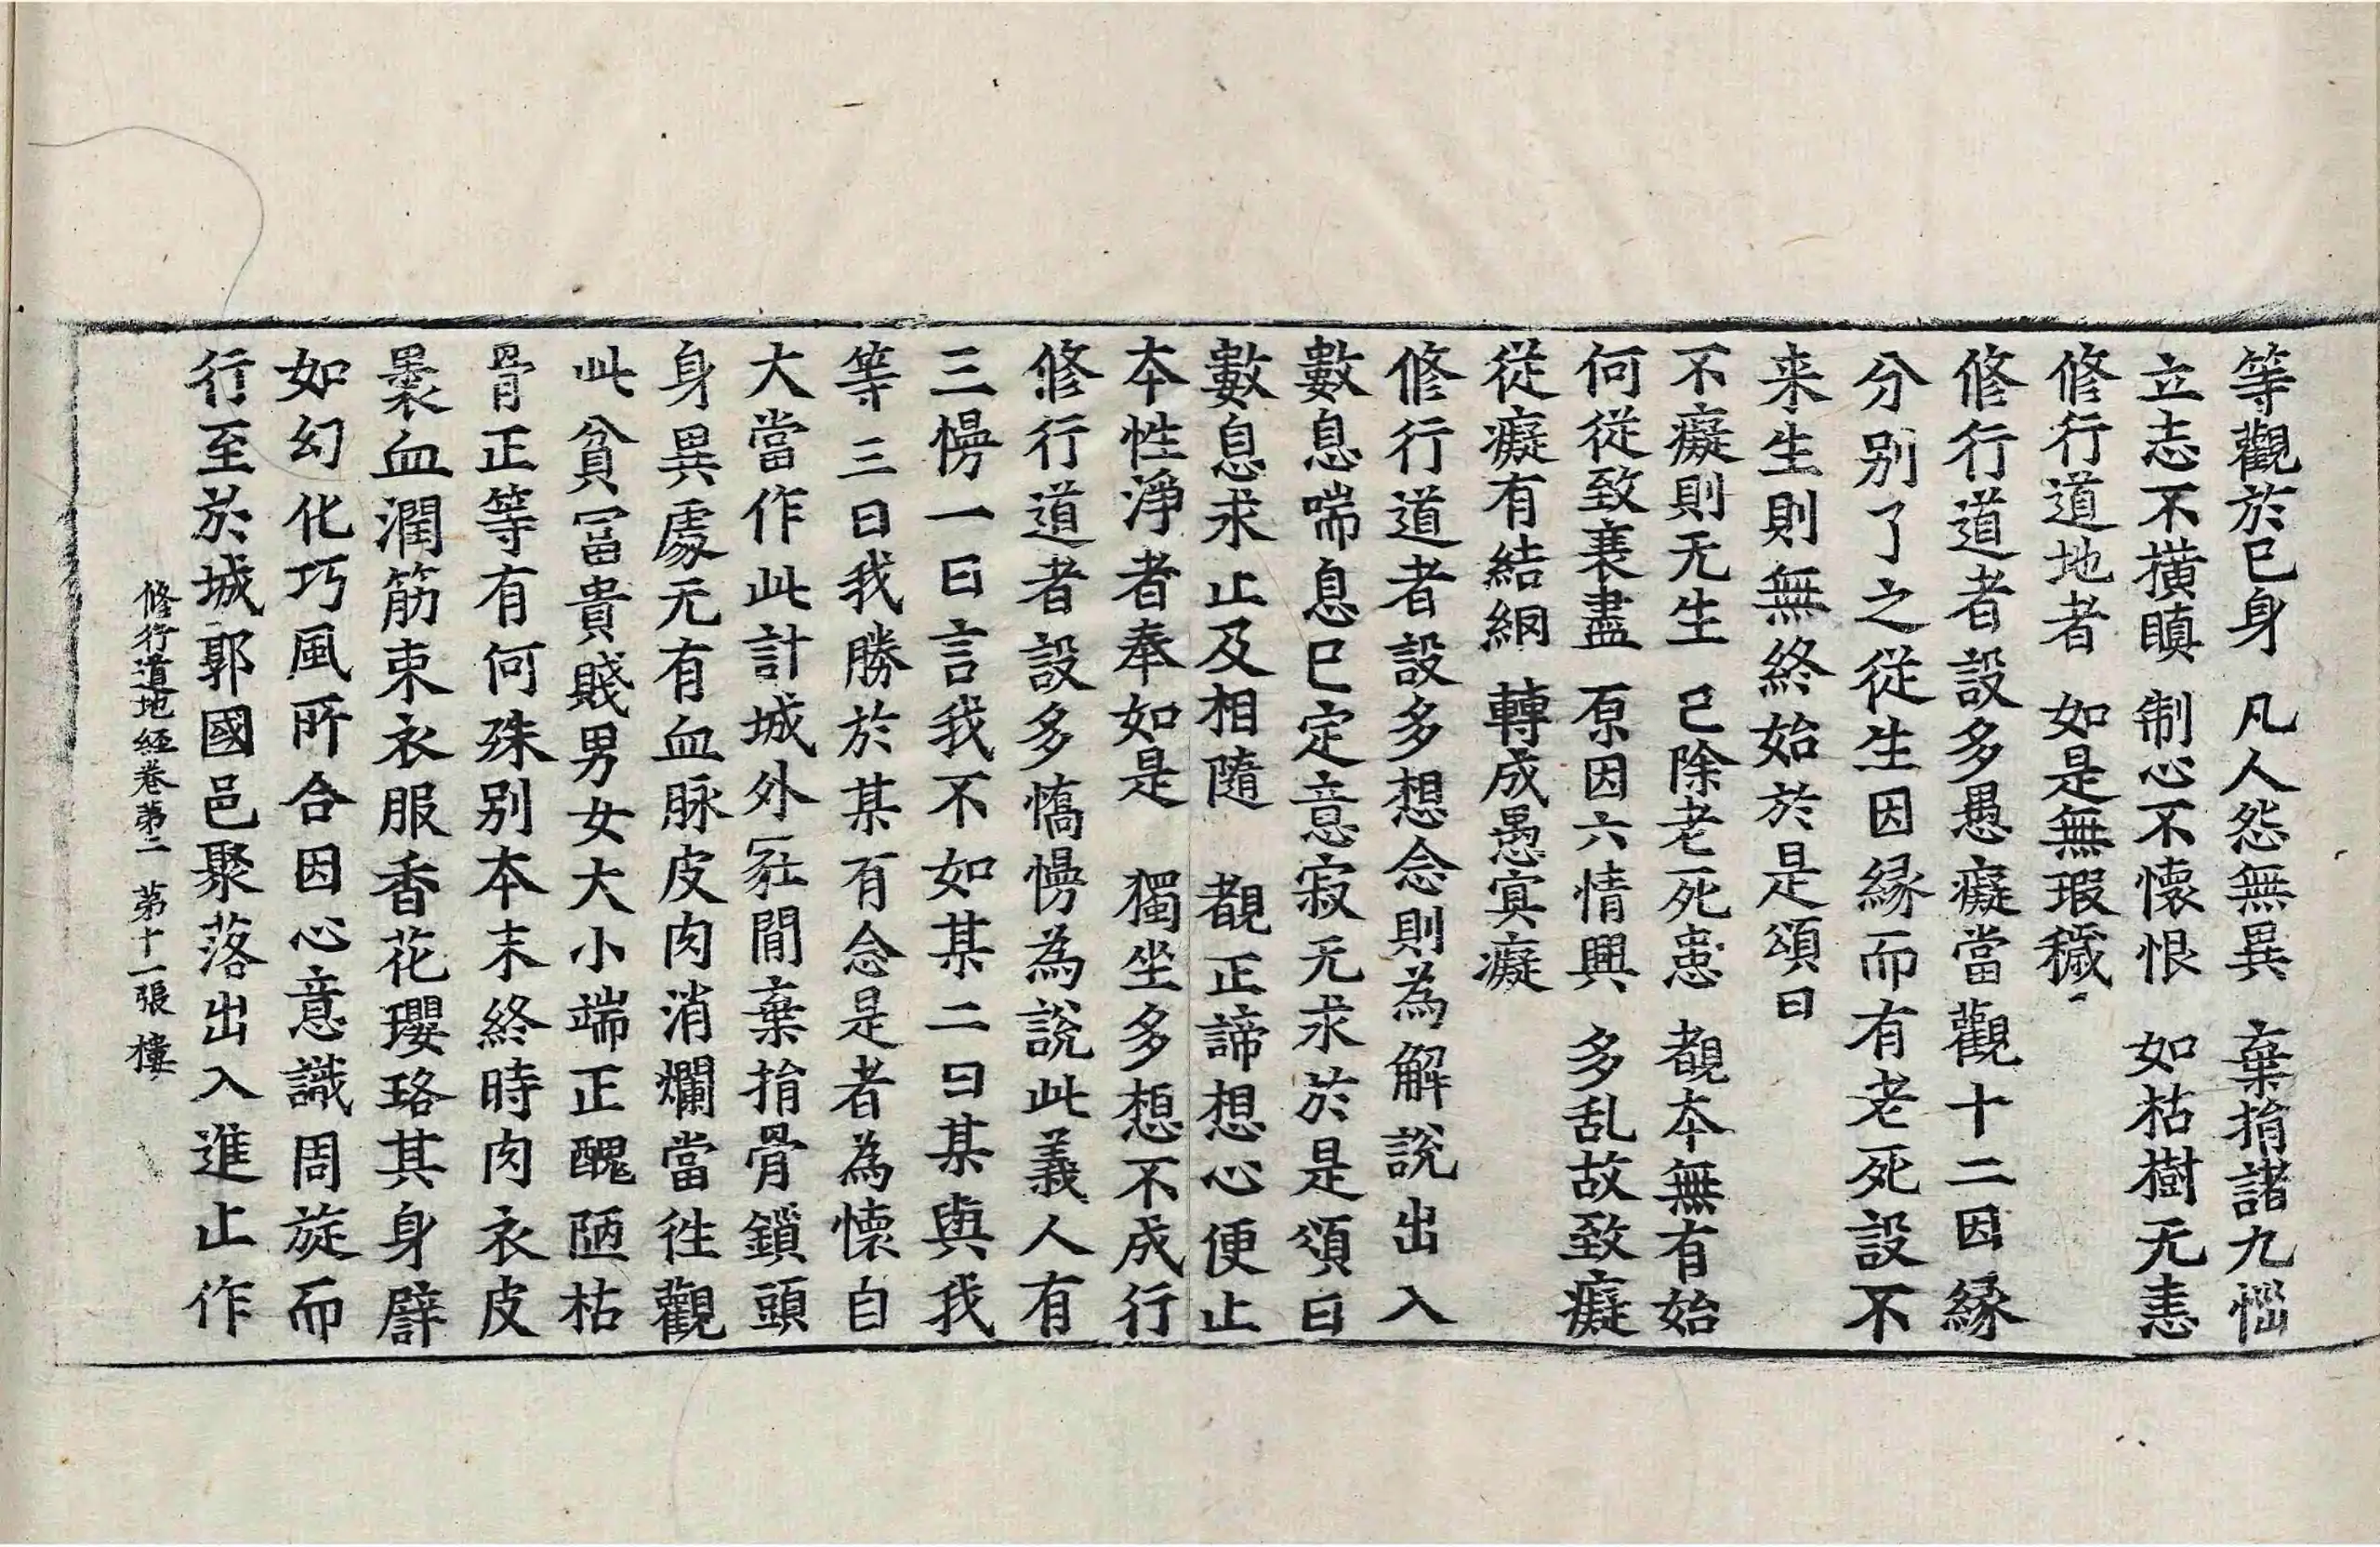 等觀於已身　凡人怨無異　棄捐諸九惱
立志不橫瞋　制心不懷恨　如枯樹无恚
修行道地者　如是無瑕穢
修行道者設多愚癡當觀十二因緣
分別了之從生因緣而有老死設不
来生則無終始於是頌曰
不癡則无生　已除老死患　覩本無有始
何從致衰盡　原因六情興　多乱故致癡
從癡有結網　轉成愚冥癡
修行道者設多想念則為解說出入
數息喘息已定意寂无求於是頌曰
數息求止及相隨　覩正諦想心便止
本性淨者奉如是　獨坐多想不成行
修行道者設多憍慢為說此義人有
三慢一曰言我不如某二曰某與我
等三曰我勝於某有念是者為懷自
大當作此計城外塚間棄捐骨鎖頭
身異處无有血脉皮肉消爛當往觀
此貧冨貴賤男女大小端正醜陋枯
骨正等有何殊別本末終時肉衣皮
裹血潤筋束衣服香花瓔珞其身辟
如幻化巧風所合因心意識周旋而
行至於城郭國邑聚落出入進止作
修行道地経卷第二　第十一張　樓